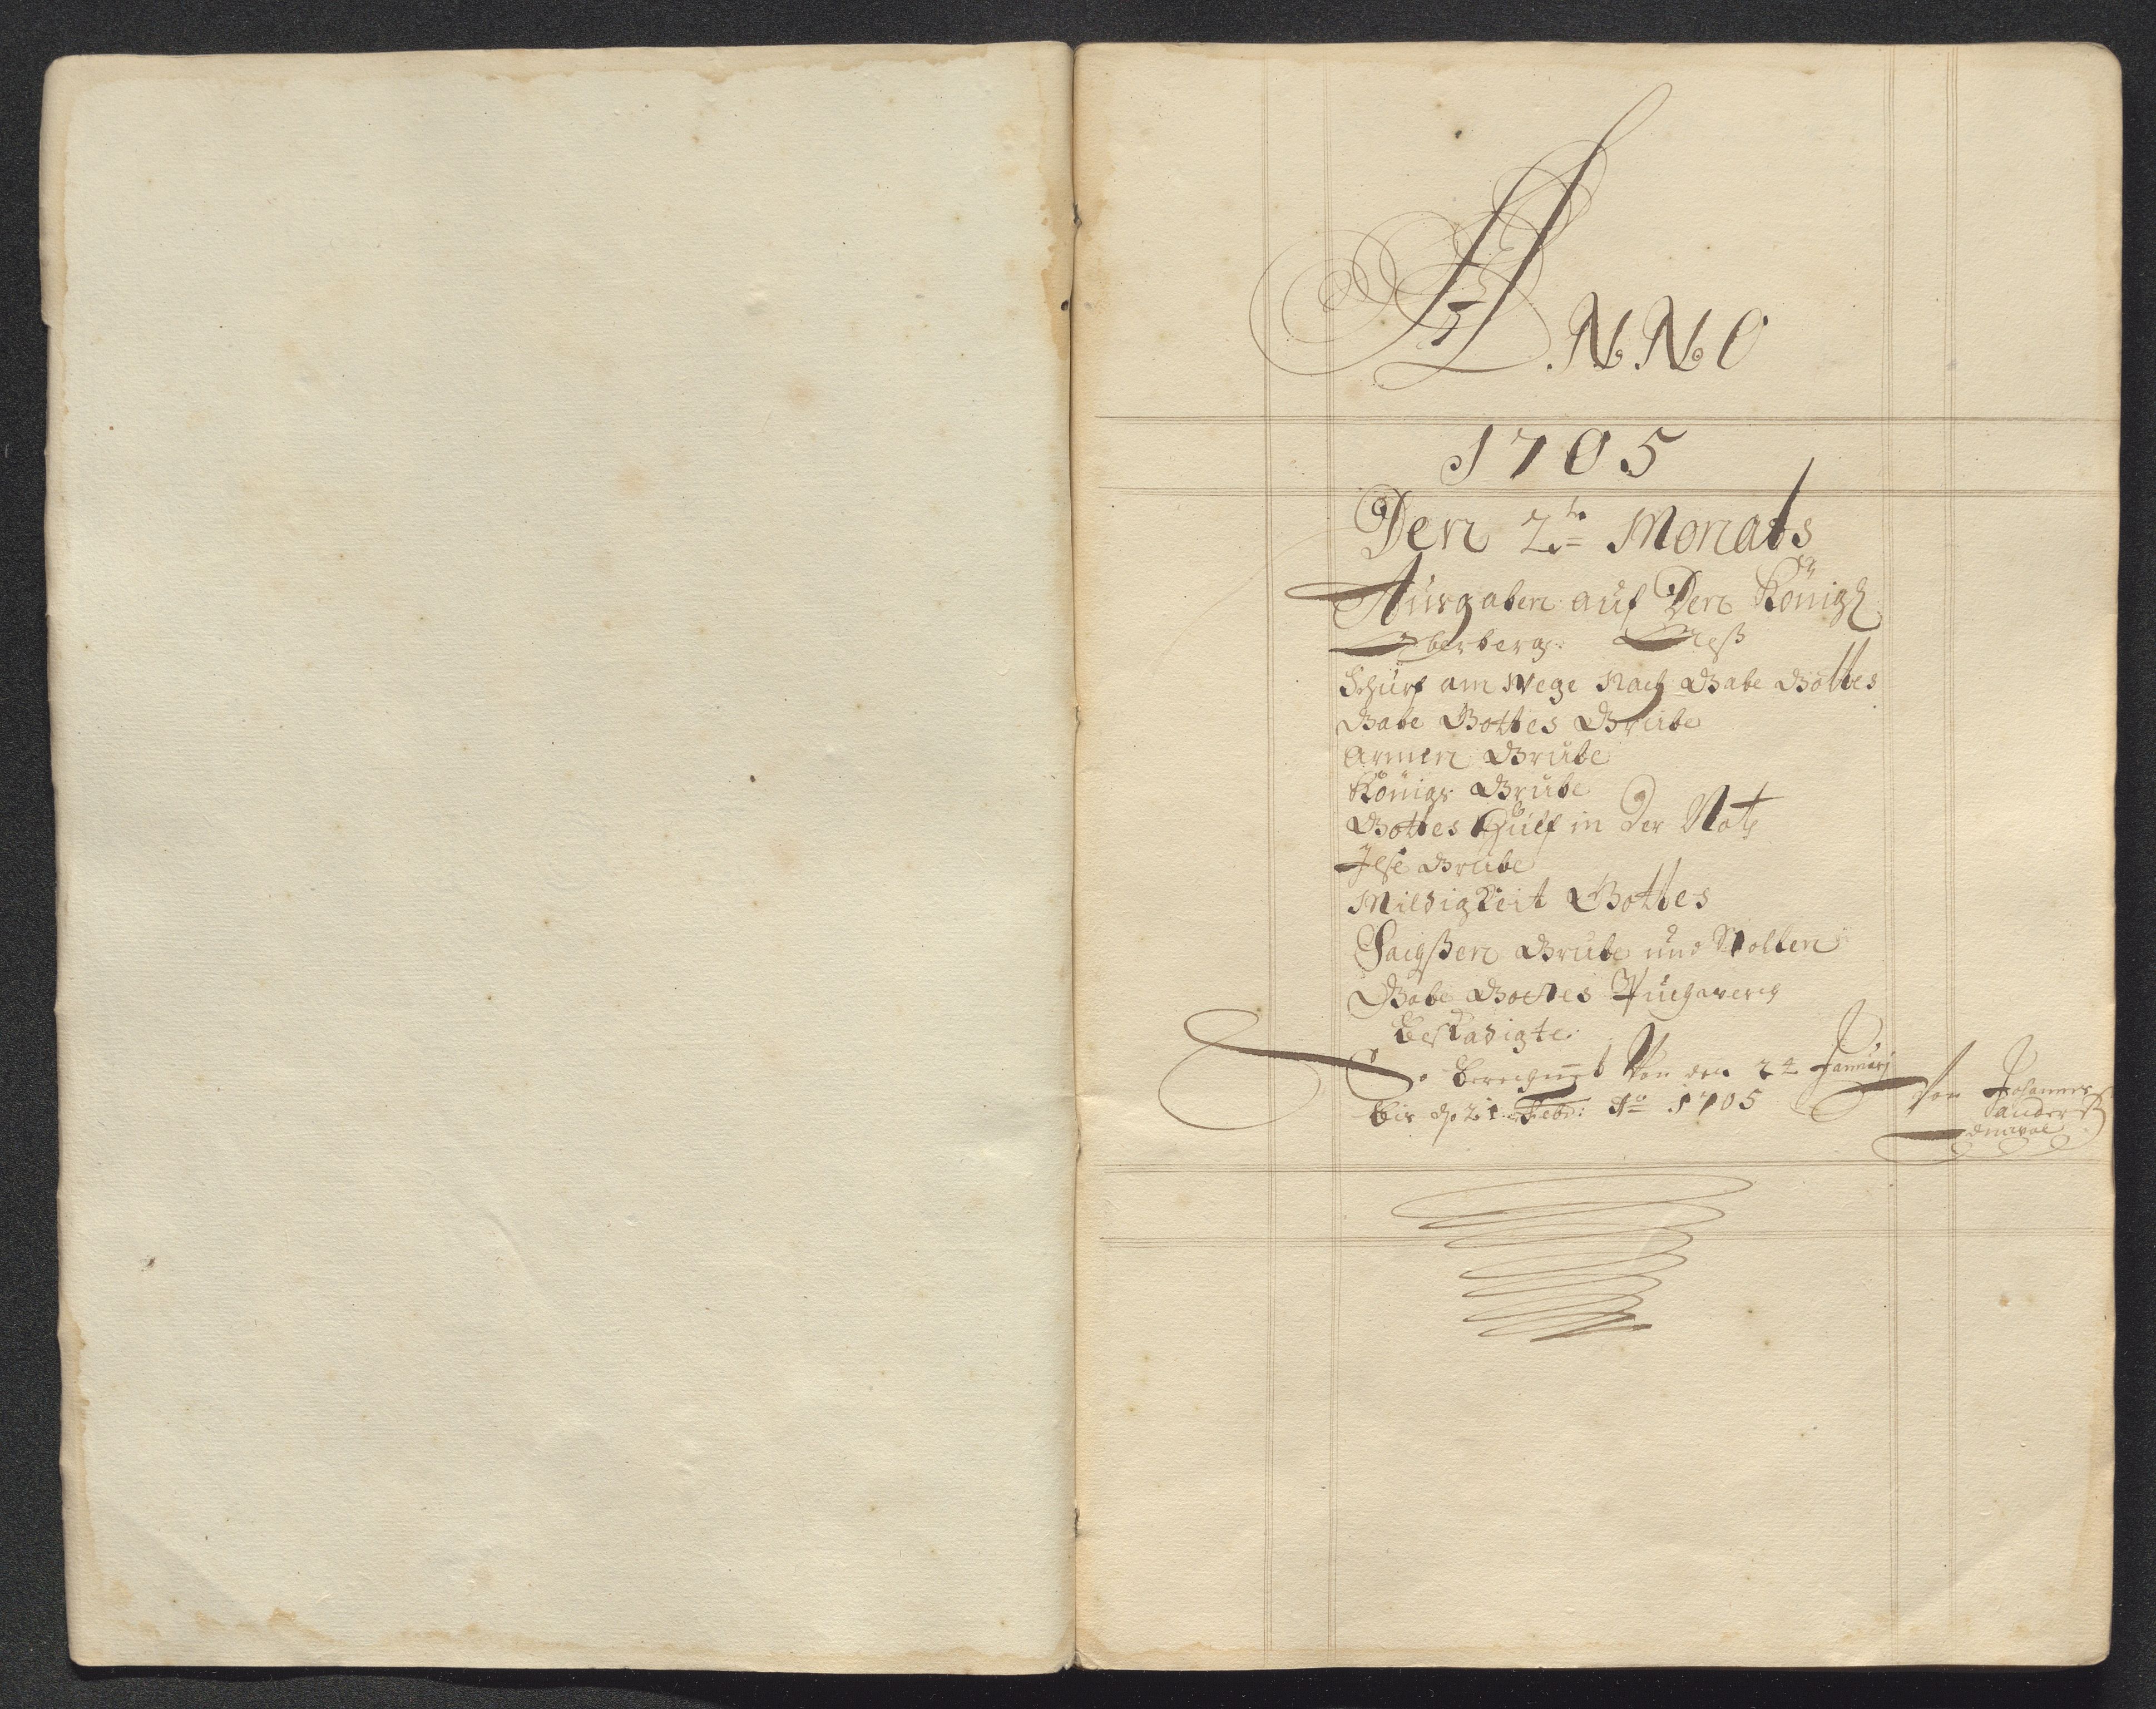 ANNO
1705
Den 2te Monats
Ausgaben auf Den Königl
Oberberg:
Schürf am Wege Nach Gabe Gottes
Gabe Gottes Grube
Armen Grube
Königs Grube
Gottes Hülf in Der Noth
Ilse Grube
Mildigkeit Gottes
Grube und Stollen
Gabe Gottes Puchwerch
So berechnet Von den 24 Januarj
bis d 21 Feb: Ao 1705
Von Johannes